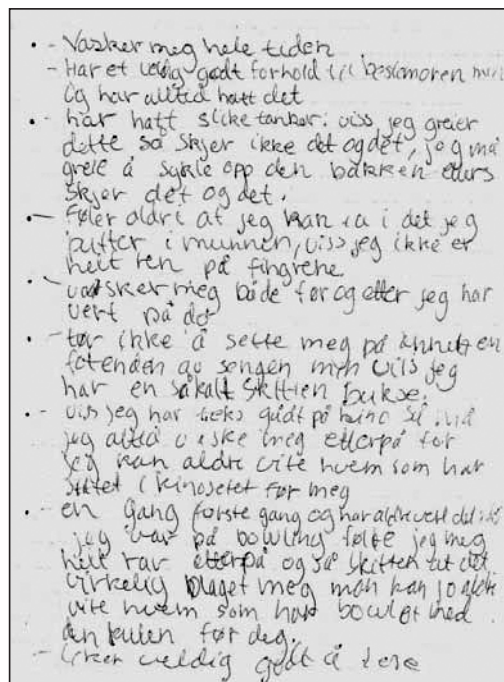 • - Vasker meg hele tiden
- Har et veldig godt forhold til bestemoren min
og har alltid hatt det
• - har hatt slike tanker: viss jeg greier
dette så skjer ikke det og det, jeg må
greie å sykle opp den bakken ellers
skjer det og det.
• - Føler aldri at jeg kan ta i det jeg
putter i munnen, viss jeg ikke er
helt ren på fingrene
• - vasker meg både før og etter jeg har
vert på do
• - tør ikke å sette meg på annet en
fotenden av sengen min viss jeg
har en såkalt skitten bukse.
• - viss jeg har feks gådt på kino så må
jeg alltid vaske meg etterpå for
jeg kan aldri vite hvem som har
sittet i kinosetet før meg
• - en gang første gang og har aldri vert der
jeg var på bowling følte jeg meg
helt rar etterpå og så skitten at det
virkelig plaget meg man kan jo aldri
vite hvem som har bowlet med
den kulen før deg.
- liker veldig godt å lese